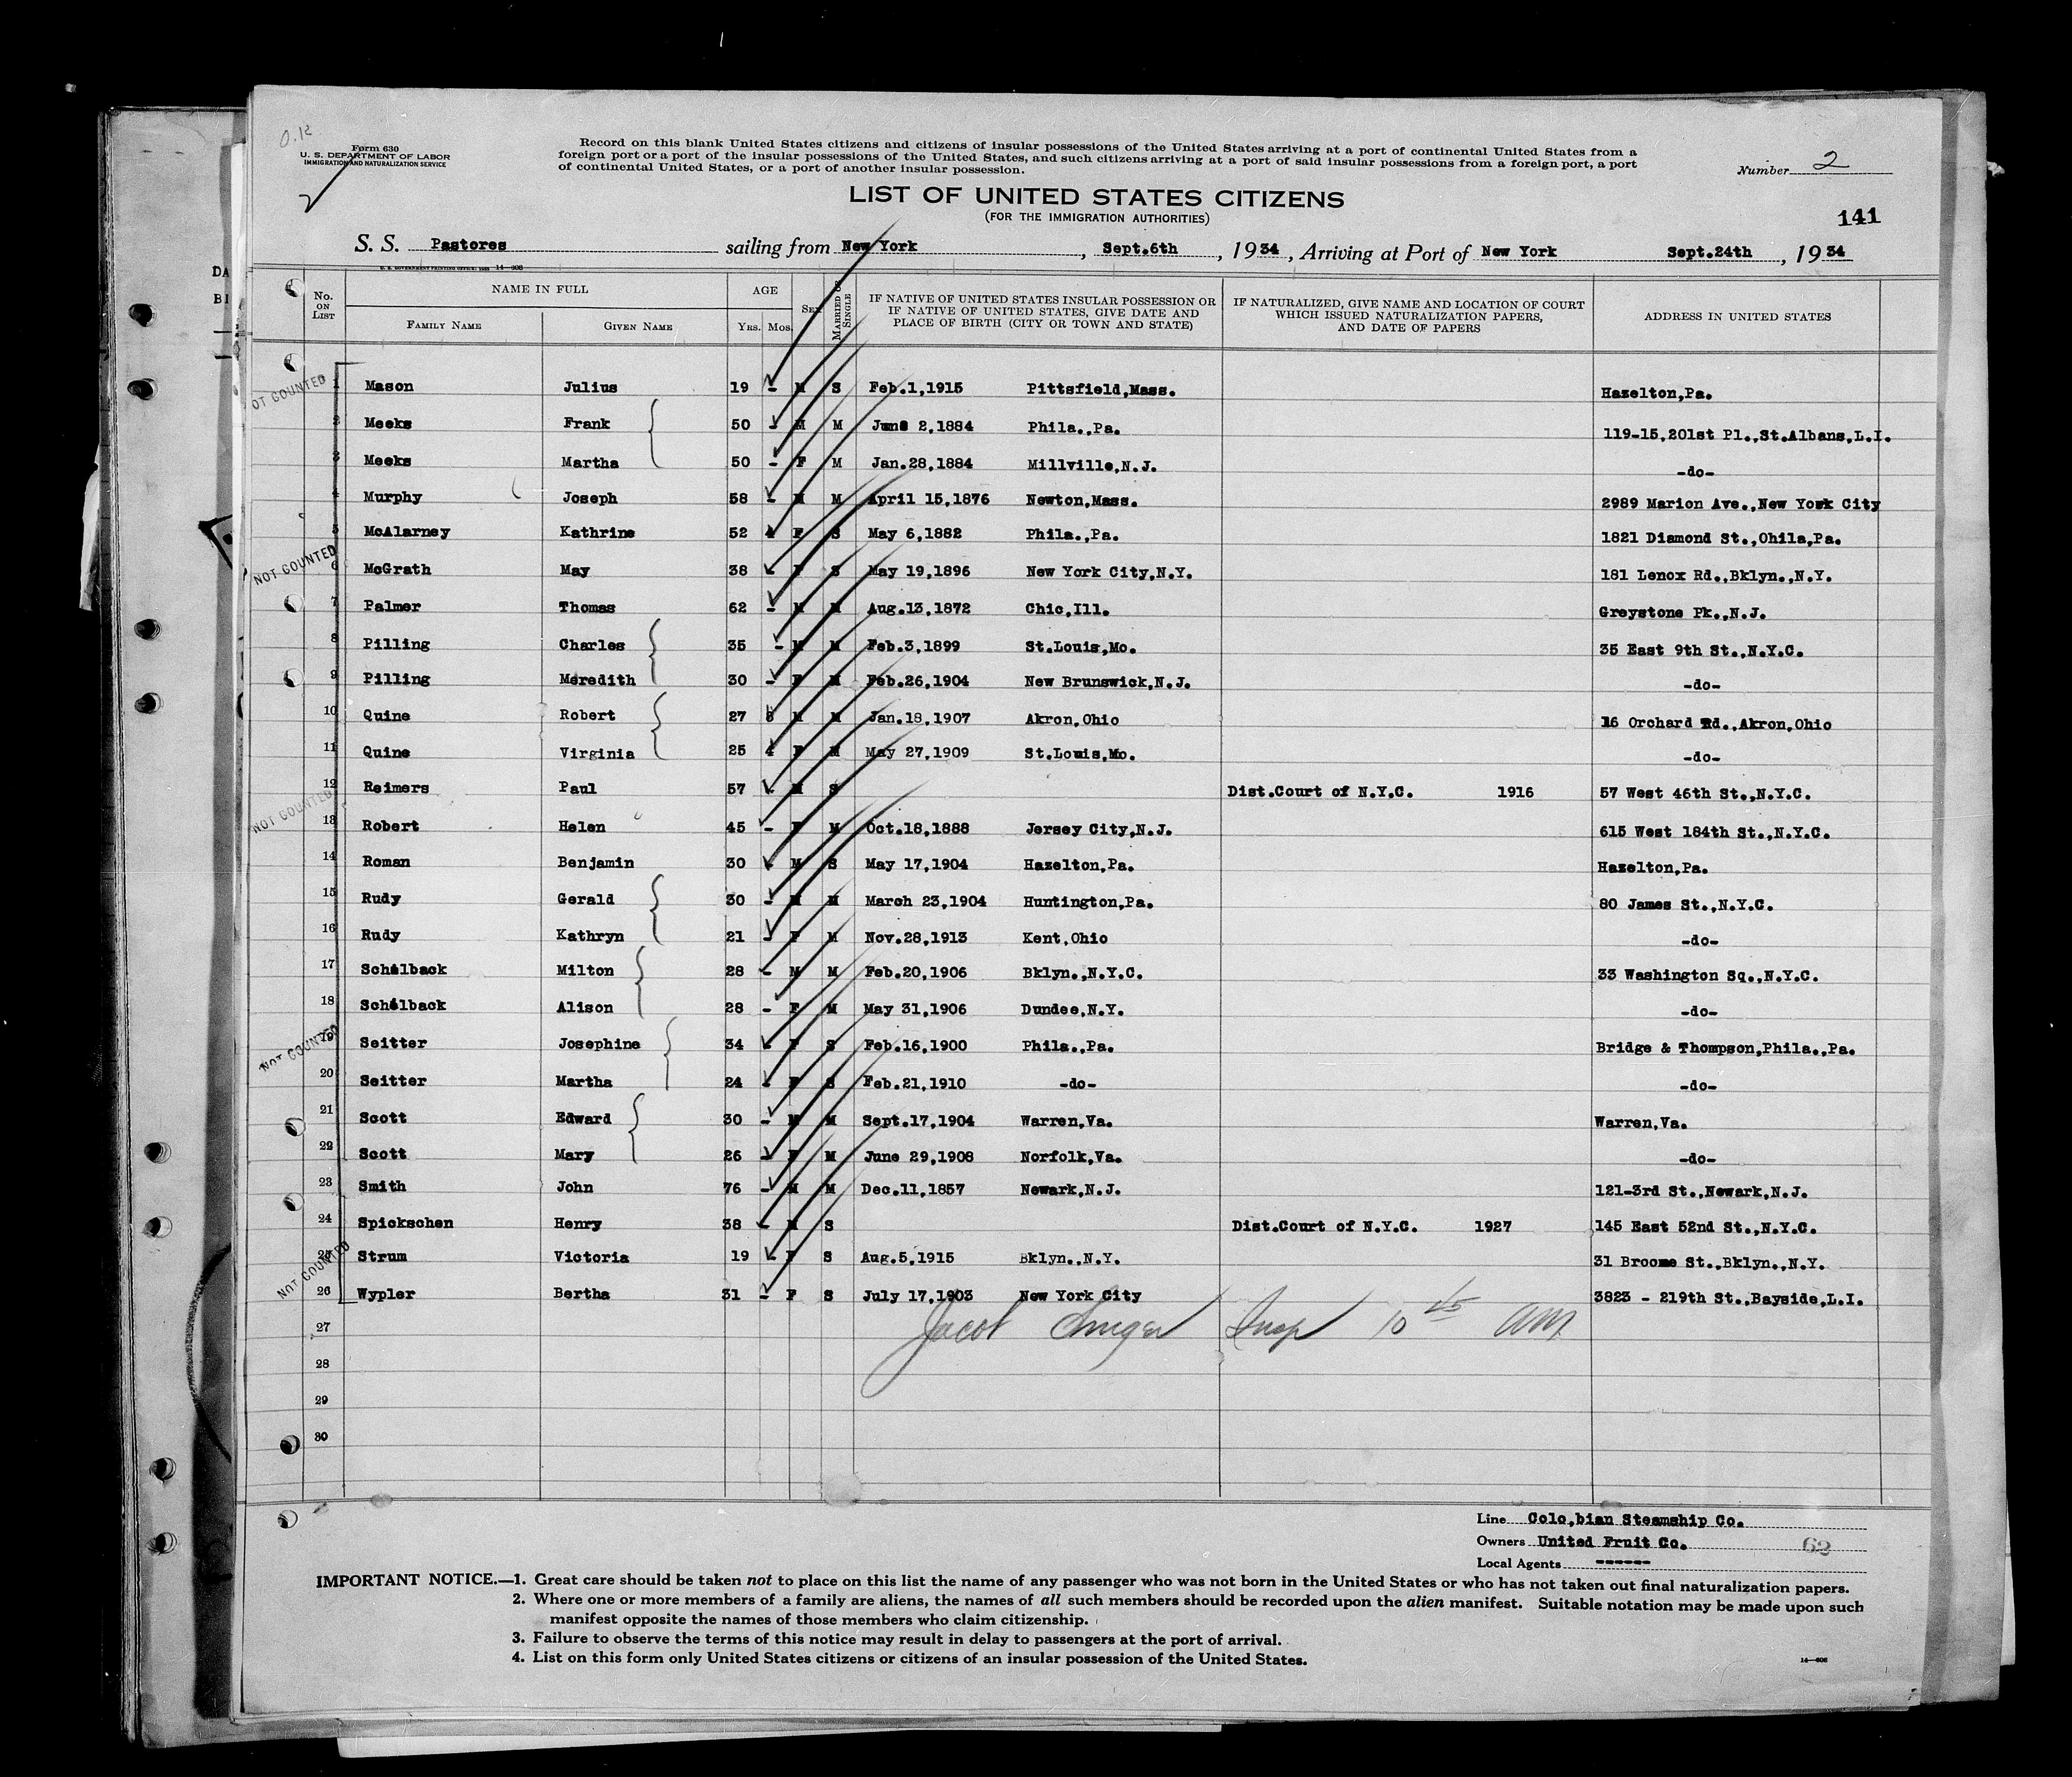 O.K
Form 630
U. S. DEPARTMENT OF LABOR
IMMIGRATION AND NATURALIZATION SERVICE
Record on this blank United States citizens and citizens of insular possessions of the United States arriving at a port of continental United States from a
foreign port or a port of the insular possessions of the United States, and such citizens arriving at a port of said insular possessions from a foreign port, a port
of continental United States, or a port of another insular possession.
Number 2
LIST OF UNITED STATES CITIZENS
(FOR THE IMMIGRATION AUTHORITIES)
141
S. S. Pastores sailing from New York, Sept.6th, 1934, Arriving at Port of New York Sept.24th, 1934
No. ON LIST NAME IN FULL AGE SEX MARRIED OR SINGLE IF NATIVE OF UNITED STATES INSULAR POSSESSION OR IF NATIVE OF UNITED STATES, GIVE DATE AND PLACE OF BIRTH (CITY OR TOWN AND STATE) IF NATURALIZED, GIVE NAME AND LOCATION OF COURT WHICH ISSUED NATURALIZATION PAPERS, AND DATE OF PAPERS ADDRESS IN UNITED STATES
FAMILY NAME GIVEN NAME YRS. MOS.
1 Mason Julius 19 - M S Feb.1,1915 Pittsfield,Mass. Hazelton,Pa.
2 Meeks Frank 50 - M M June 2,1884 Phila.,Pa. 119-15,201st Pl.,St.Albans,L.I.
3 Meeks Martha 50 - F M Jan.28,1884 Millville,N.J. -do-
4 Murphy Joseph 58 - M M April 15,1876 Newton,Mass. 2989 Marion Ave.,New York City
5 McAlarney Kathrine 52 4 F S May 6,1882 Phila.,Pa. 1821 Diamond St.,Ohila,Pa.
6 McGrath May 38 - F S May 19,1896 New York City,N.Y. 181 Lenox Rd.,Bklyn.,N.Y.
7 Palmer Thomas 62 - M M Aug.13,1872 Chic,Ill. Greystone Pk.,N.J.
8 Pilling Charles 35 - M M Feb.3,1899 St.Louis,Mo. 35 East 9th St.,N.Y.C.
9 Pilling Meredith 30 - F M Feb.26,1904 New Brunswick,N.J. -do-
10 Quine Robert 27 8 M M Jan.18,1907 Akron,Ohio 16 Orchard Rd.,Akron,Ohio
11 Quine Virginia 25 4 F M May 27,1909 St.Louis,Mo. -do-
12 Reimers Paul 57 - M S Dist.Court of N.Y.C. 1916 57 West 46th St.,N.Y.C.
13 Robert Helen 45 - F M Oct.18,1888 Jersey City,N.J. 615 West 184th St.,N.Y.C.
14 Roman Benjamin 30 - M S May 17,1904 Hazelton,Pa. Hazelton,Pa.
15 Rudy Gerald 30 - M M March 23,1904 Huntington,Pa. 80 James St.,N.Y.C.
16 Rudy Kathryn 21 - F M Nov.28,1913 Kent,Ohio -do-
17 Schelback Milton 28 - M M Feb.20,1906 Bklyn.,N.Y.C. 33 Washington Sq.,N.Y.C.
18 Schelback Alison 28 - F M May 31,1906 Dundee,N.Y. -do-
19 Seitter Josephine 34 - F S Feb.16,1900 Phila.,Pa. Bridge & Thompson,Phila.,Pa.
20 Seitter Martha 24 - F S Feb.21,1910 -do- -do-
21 Scott Edward 30 - M M Sept.17,1904 Warren,Va. Warren,Va.
22 Scott Mary 26 - F M June 29,1908 Norfolk,Va. -do-
23 Smith John 76 - M M Dec.11,1857 Newark,N.J. 121-3rd St.,Newark,N.J.
24 Spickschen Henry 38 - M S Dist.Court of N.Y.C. 1927 145 East 52nd St.,N.Y.C.
25 Strum Victoria 19 - F S Aug.5,1915 Bklyn.,N.Y. 31 Broome St.,Bklyn.,N.Y.
26 Wypler Bertha 31 - F S July 17,1903 New York City 3823 - 219th St.,Bayside,L.I.
27 Jacob Insp 10 45 AM
28
29
30
NOT COUNTED
NOT COUNTED
NOT COUNTED
NOT COUNTED
NOT COUNTED
Line Colo,bian Steamship Co.
Owners United Fruit Co. 62
Local Agents ------
IMPORTANT NOTICE.—1. Great care should be taken not to place on this list the name of any passenger who was not born in the United States or who has not taken out final naturalization papers.
2. Where one or more members of a family are aliens, the names of all such members should be recorded upon the alien manifest. Suitable notation may be made upon such
manifest opposite the names of those members who claim citizenship.
3. Failure to observe the terms of this notice may result in delay to passengers at the port of arrival.
4. List on this form only United States citizens or citizens of an insular possession of the United States.